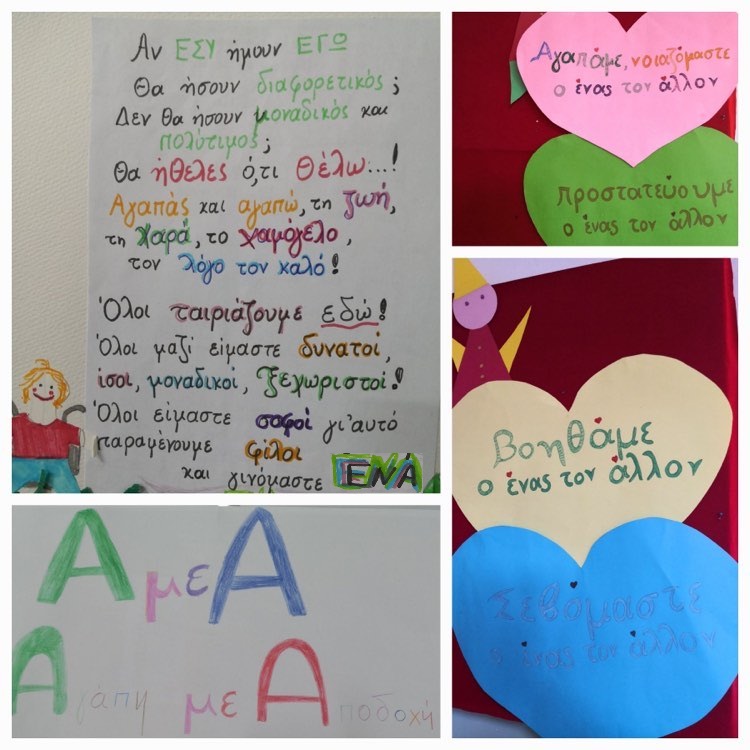 Αν ΕΣΥ ήμουν ΕΓΩ
Θα ήσουν διαφορετικός;
Δεν θα ήσουν μοναδικός και
πολύτιμος;
Θα ήθελες ό,τι Θέλω...!
Αγαπάς και αγαπώ, τη ζωή,
τη Χαρά, το χαμόγελο,
τον λόγο τον καλό!
Όλοι ταιριάζουμε εδώ!
Όλοι μαζί είμαστε δυνατοί,
ίσοι, μοναδικοί, ξεχωριστοί!
Όλοι είμαστε σοφοί γι'αυτό
παραμένουμε φίλοι
και γινόμαστε ΕΝΑ
Αγαπάμε, νοιαζόμαστε
ο ένας τον άλλον
προστατεύουμε
ο ένας τον άλλον
Βοηθάμε
ο ένας τον άλλον
Σεβόμαστε
ο ένας τον άλλον
Α με Α
Αγάπη με Αποδοχή